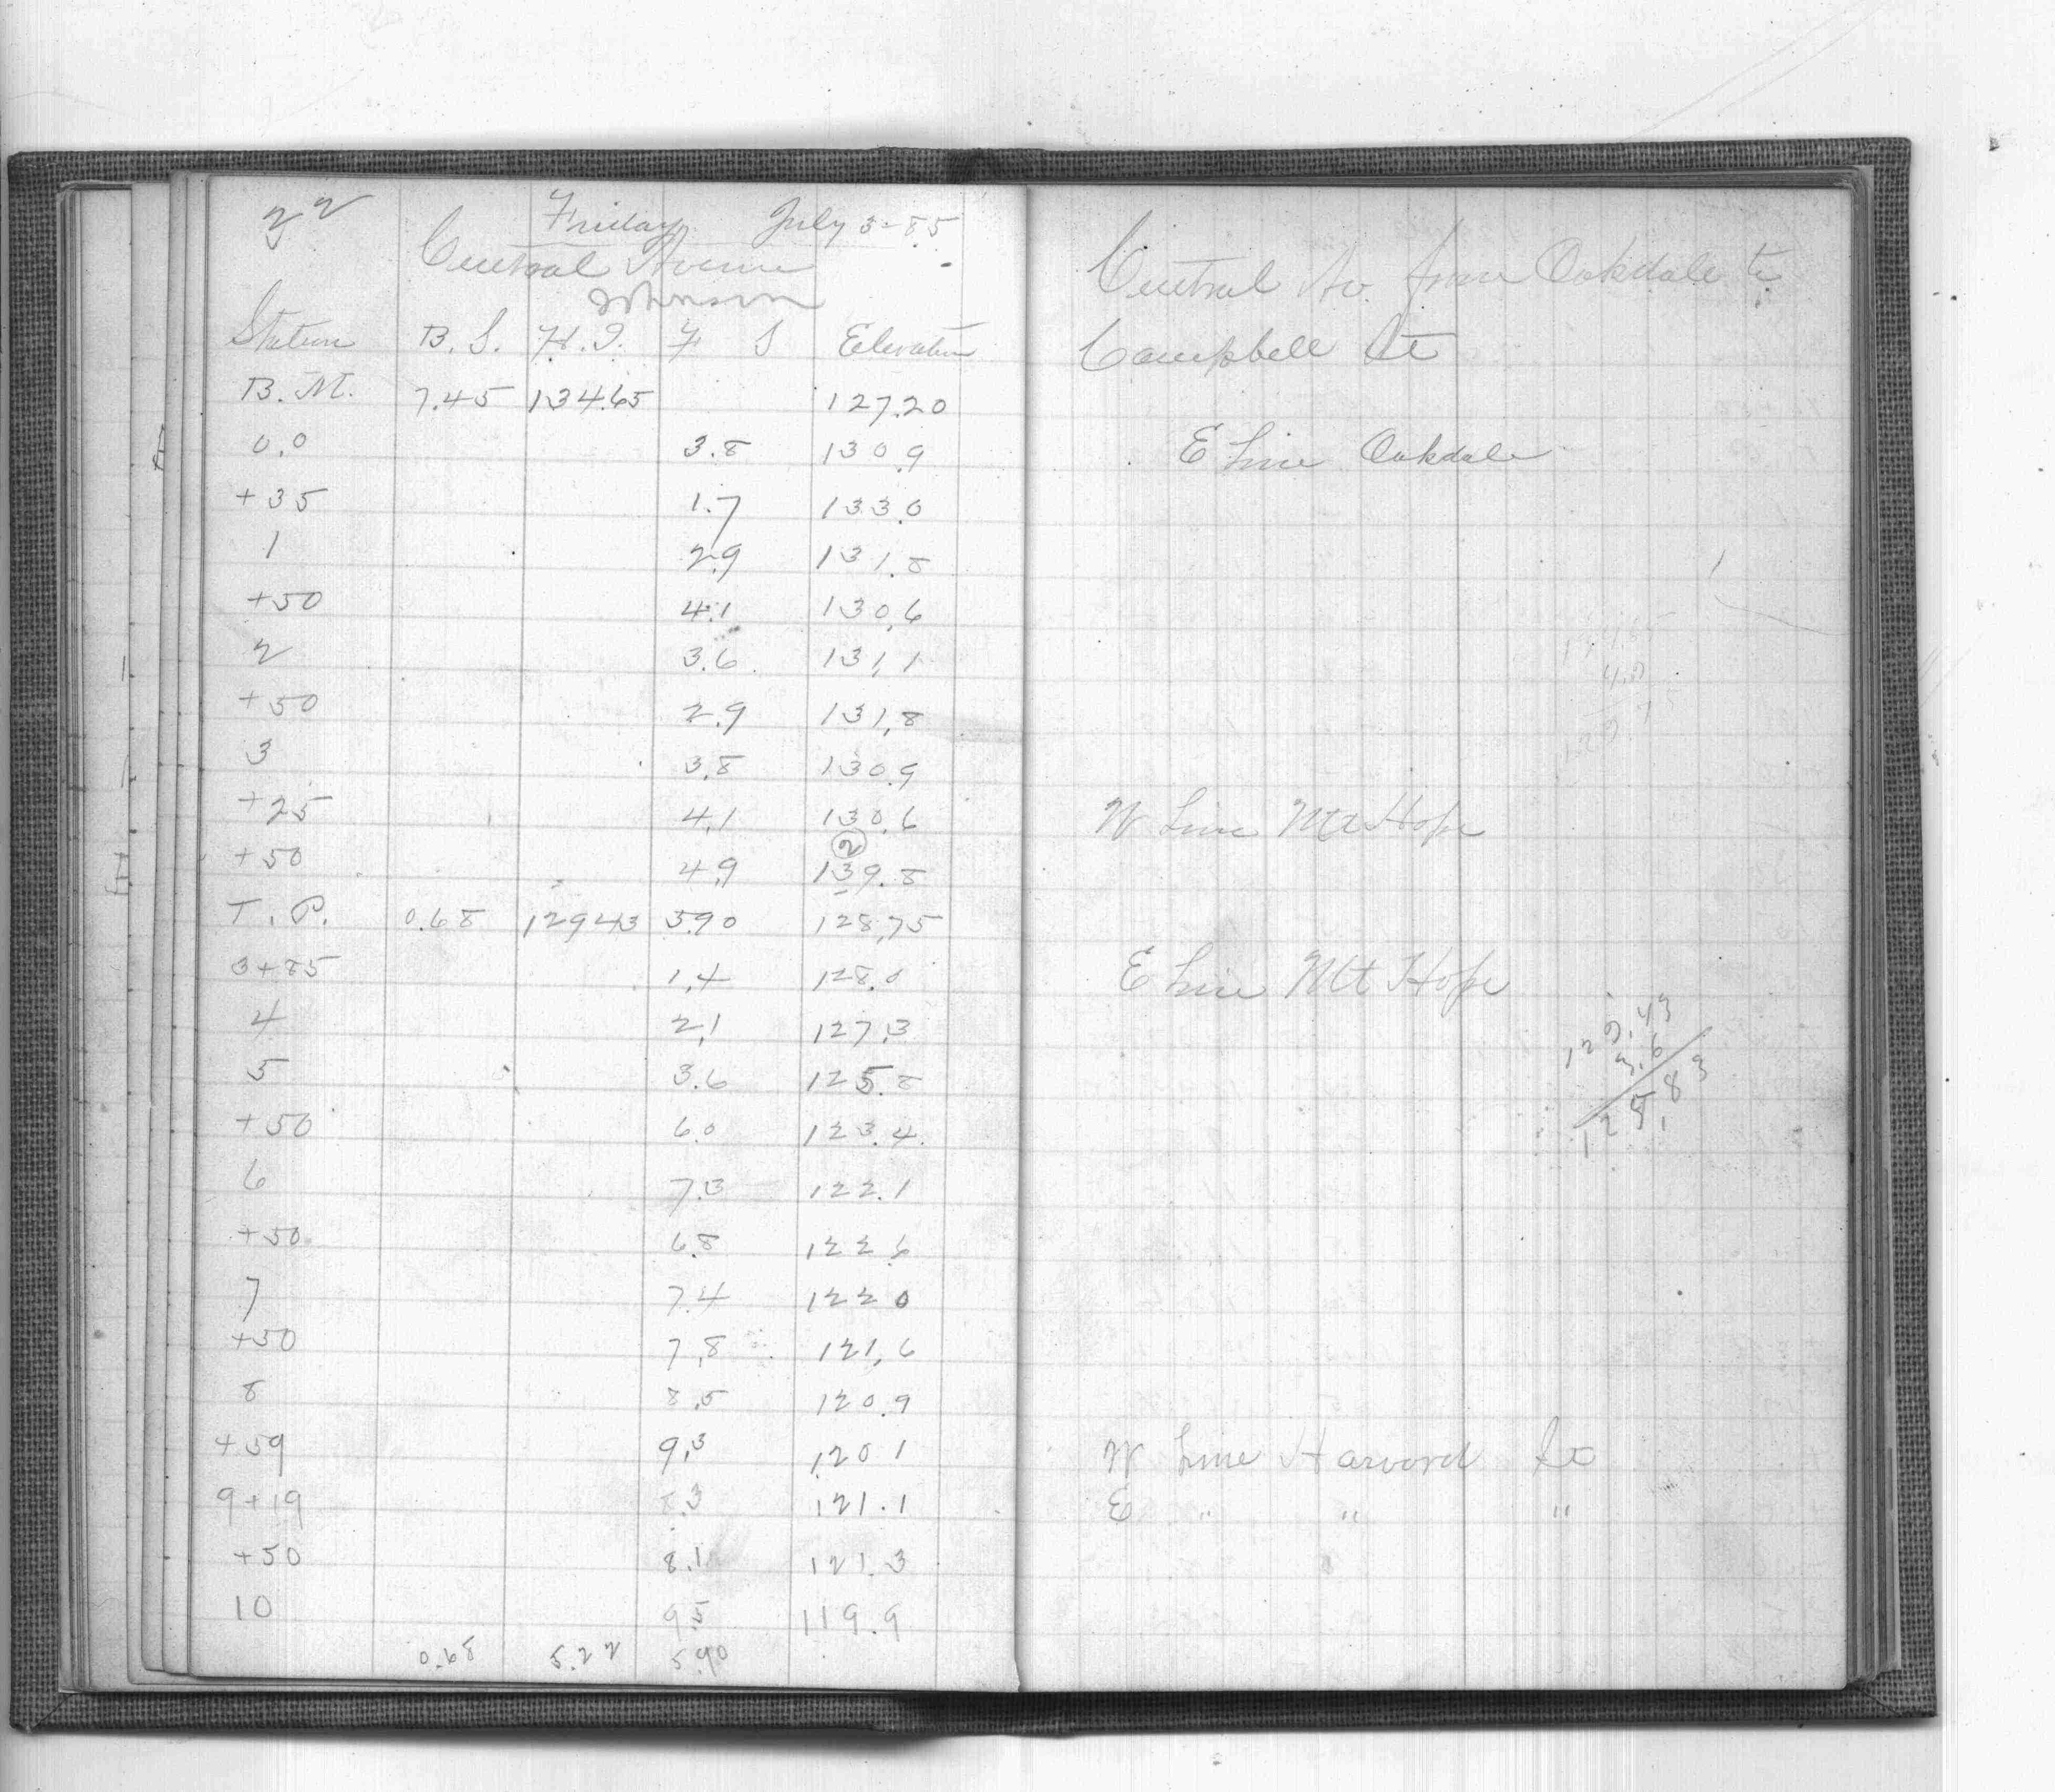 22
Friday July 3-85
Central Avenue
Johnson
Station B.S. H.I. F S Elevation
B.M. 7.45 134.65 127.20
0.0 3.8 130.9
+35 1.7 133.0
1 2.9 131.8
+50 4.1 130.6
2 3.6 131.1
+50 2.9 131.8
3 3.8 130.9
+25 4.1 130.6
2
+50 4.9 139.8
T.P. 0.68 129.43 5.90 128.75
3+85 1.4 128.0
4 2.1 127.3
5 3.6 125.8
+50 6.0 123.4
6 7.3 122.1
+50 6.8 122.6
7 7.4 122.0
+50 7.8 121.6
8 8.5 120.9
+59 9.3 120.1
9+19 8.3 121.1
+50 8.1 121.3
10 9.5 119.9
0.68 5.22 5.90
Central Av. from Oakdale to
Campbell St
E Line Oakdale
W Line Mt Hope
E Line Mt Hope
129.43
3.6
125.83
W Line Harvard St
E " " "